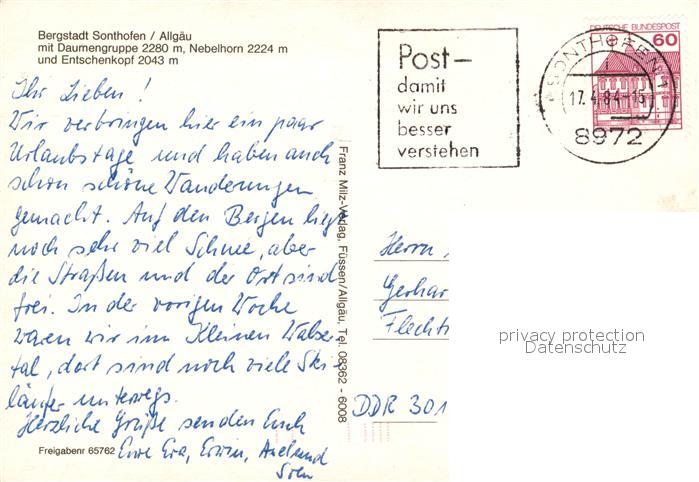 Bergstadt Sonthofen / Allgäu
mit Daumengruppe 2280 m, Nebelhorn 2224 m
und Entschenkopf 2043 m
Ihr Lieben!
Wir verbringen hier ein paar
Urlaubstage und haben auch
schon schöne Wanderungen
gemacht. Auf den Bergen liegt
noch sehr viel Schnee, aber
die Straßen und der Ort sind
frei. In der vorigen Woche
waren wir im Kleinen Walser-
tal, dort sind noch viele Ski-
läufer unterwegs.
Herzliche Grüße senden Euch
Eure Eva, Erwin, Axel und
Sven
Freigabenr 65762
Franz Milz-Verlag, Füssen/Allgäu, Tel. 08362 - 6008
Post-
damit
wir uns
besser
verstehen
SONTHOFEN 1
17.4.84-15
8972
DEUTSCHE BUNDESPOST
60
Herrn
Gerhar
Flecht
DDR 301
privacy protection
Datenschutz